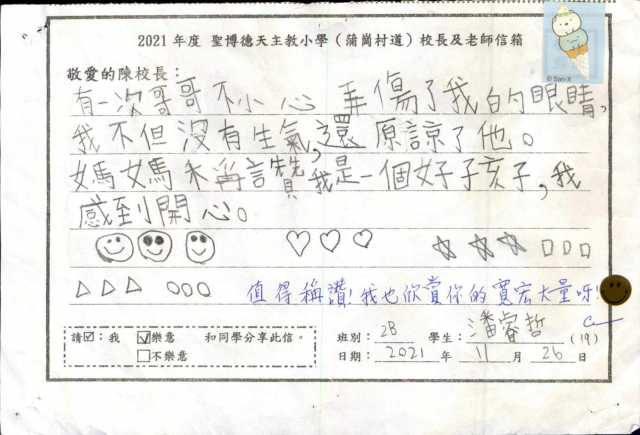 2021 年度 聖博德天主教小學（蒲崗村道）校長及老師信箱
© San-X
敬愛的陳校長：
有一次哥哥不小心弄傷了我的眼睛，
我不但沒有生氣，還原諒了他。
媽媽稱讚我是一個好子孩子，我
感到開心。
值得稱讚！我也欣賞你的寬宏大量呀！
請☑：我 ☑樂意 和同學分享此信。
☐不樂意
班別：2B 學生：潘睿哲 (19)
日期：2021 年 11 月 26 日